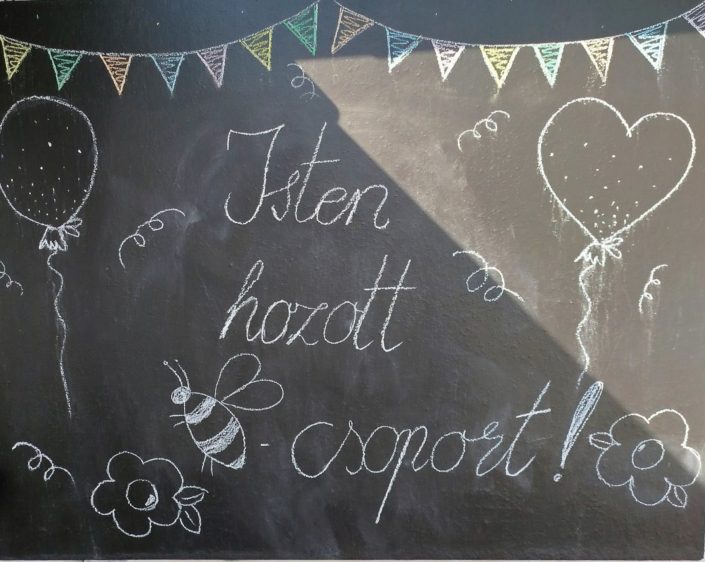 Isten
hozott
-csoport!